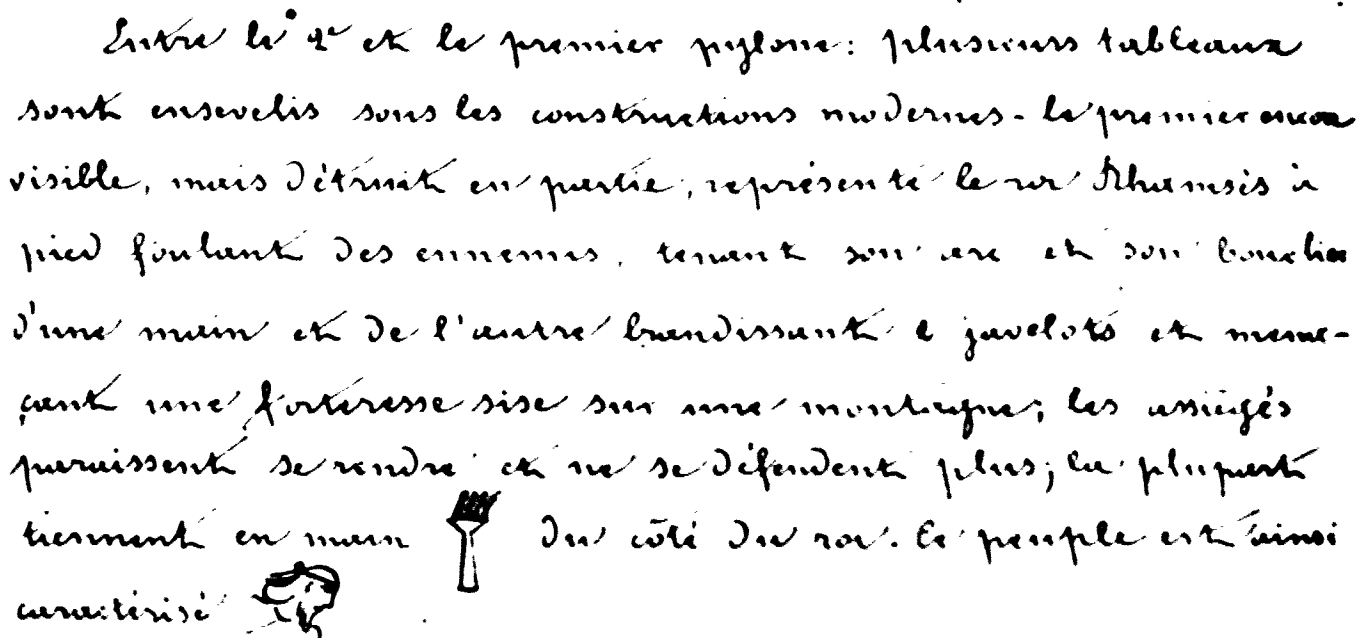 Entre le 2e et le premier pylone: plusieurs tableaux
sont ensevelis sous les constructions modernes - le premier encore
visible, mais détruit en partie, représente le roi Rhamsès à
pied foulant des ennemis, tenant son arc et son bouclier
d'une main et de l'autre brandissant 2 javelots et mena-
çant une forteresse sise sur une montagne; les assiégés
paraissent se rendre et ne se défendent plus; la plupart
tiennent en main du côté du roi. Ce peuple est ainsi
caractérisé